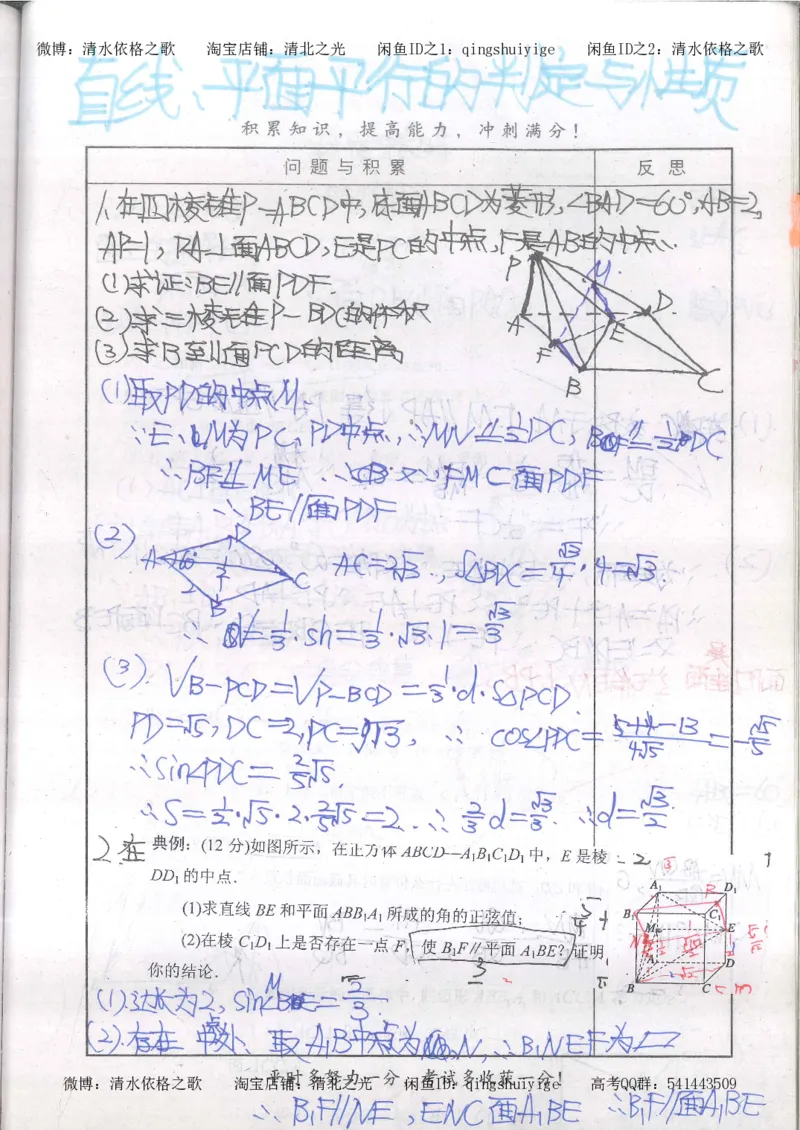 微博：清水依格之歌 淘宝店铺：清北之光 闲鱼ID之1：qingshuiyige 闲鱼ID之2：清水依格之歌
直线、平面平行的判定与性质
积累知识，提高能力，冲刺满分！
问题与积累 反思
1.在四棱锥P-ABCD中,底面ABCD为菱形,∠BAD=60°,AB=2,
AP=1,PA⊥面ABCD,E是PC的中点,F是AB的中点.
(1)求证:BE∥面PDF.
(2)求三棱锥P-BDC的体积
(3)求B至山面PCD的距离
P M A D E F B C
(1)取PD的中点M,
∵E、M为PC、PD中点,∴MN∥½DC,
∴BE∥ME. 面PDF
∴BE∥面PDF
(2)
A 60° D 2 C B
AC=2√3, S△BDC=√3/4·4=√3
∴ =1/3·sh=1/3·√3·1=√3/3
(3). VB-PCD=VP-BCD=1/3·d·S△PCD.
PD=√5,DC=2,PC=√13, ∴ cos∠PDC=(5+4-13)/4√5=-√5/5
∴sin∠PDC=2/5√5
∴S=1/2·√5·2·2/5√5=2. ∴2/3d=√3/3. ∴d=√3/2
2.在 典例：(12 分)如图所示，在正方体 ABCD—A₁B₁C₁D₁ 中，E 是棱
DD₁ 的中点．
(1)求直线 BE 和平面 ABB₁A₁ 所成的角的正弦值；
(2)在棱 C₁D₁ 上是否存在一点 F，使 B₁F∥平面 A₁BE？证明
你的结论．
A₁ D₁ B₁ C₁ M E A D B C
(1)边长为2, =2/3.
(2).存在 取A₁B中点为N,∴B₁NEF为▱
平时多努力一分，考试多收获一分！
微博：清水依格之歌 淘宝店铺：清北之光 闲鱼ID：qingshuiyige 高考QQ群：541443509
∴B₁F∥NE,EN⊂面A₁BE ∴B₁F∥面A₁BE